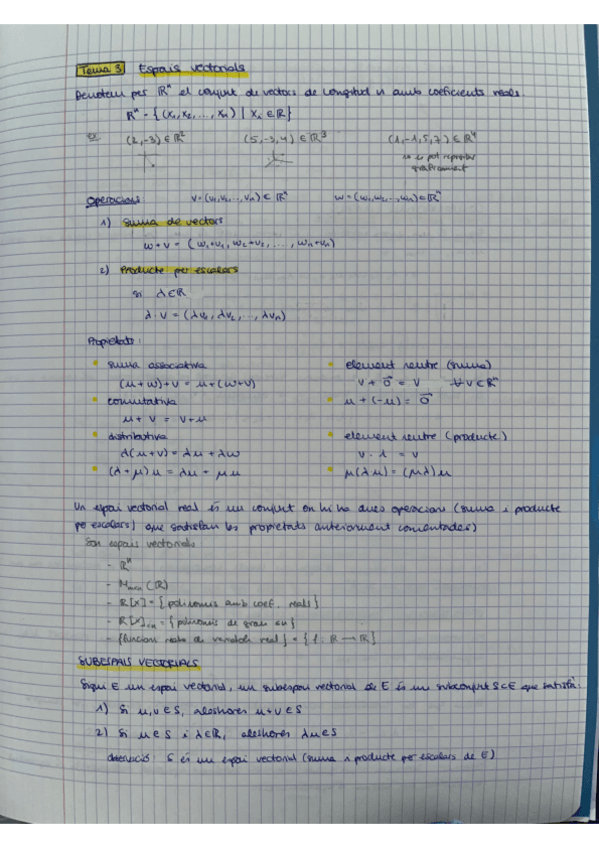 Tema 3 Espais vectorials
Denotem per ℝⁿ el conjunt de vectors de longitud n amb coeficients reals
ℝⁿ = {(x₁, x₂, ..., xₙ) | xᵢ ∈ ℝ}
(2,-3) ∈ ℝ² (5,-3,4) ∈ ℝ³ (1,-1,5,7) ∈ ℝ⁴
no es pot representar
gràficament
Operacions: v = (v₁, v₂, ..., vₙ) ∈ ℝⁿ w = (w₁, w₂, ..., wₙ) ∈ ℝⁿ
1) Suma de vectors
w + v = (w₁+v₁, w₂+v₂, ..., wₙ+vₙ)
2) Producte per escalars
si λ ∈ ℝ
λ · v = (λv₁, λv₂, ..., λvₙ)
Propietats:
• suma associativa • element neutre (suma)
(u+w)+v = u+(w+v) v + 0⃗ = v ∀v ∈ ℝⁿ
• commutativa • u + (-u) = 0⃗
u + v = v + u
• distributiva • element neutre (producte)
λ(u+v) = λu + λw v · 1 = v
• (λ+μ)u = λu + μu • μ(λu) = (μλ)u
Un espai vectorial real és un conjunt on hi ha dues operacions (suma i producte
per escalars) que satisfan les propietats anteriorment comentades)
Són espais vectorials
- ℝⁿ
- Mₘₓₙ(ℝ)
- ℝ[x] = {polinomis amb coef. reals}
- ℝ[x]≤ₙ = {polinomis de grau ≤n}
- {funcions reals de variable real} = {f: ℝ → ℝ}
SUBESPAIS VECTORIALS
Sigui E un espai vectorial, un subespai vectorial de E és un subconjunt S⊂E que satisfà:
1) Si u, v ∈ S, aleshores u+v ∈ S
2) Si u ∈ S i λ ∈ ℝ, aleshores λu ∈ S
observació: S és un espai vectorial (suma i producte per escalars de E)